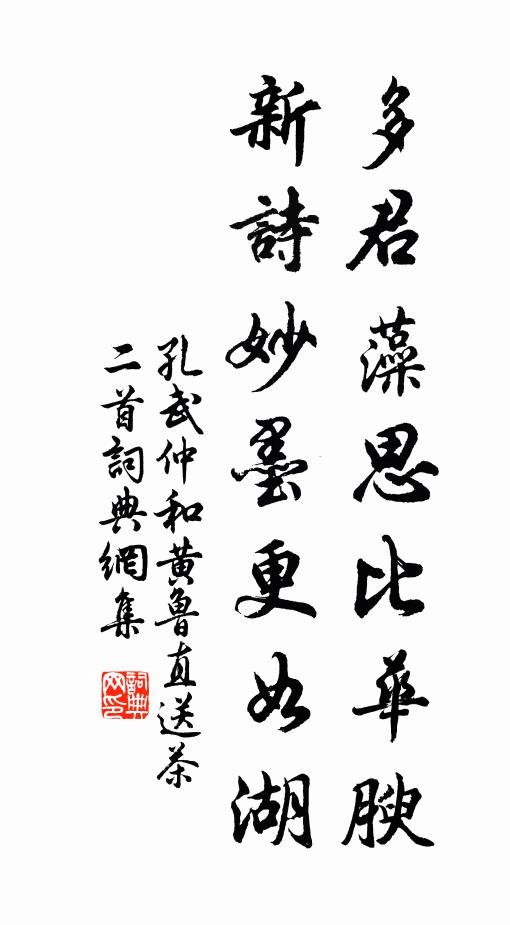 多君藻思比華腴
新詩妙墨更如湖
孔武仲和黃魯直送茶
二首詞典網集
詞典
网印